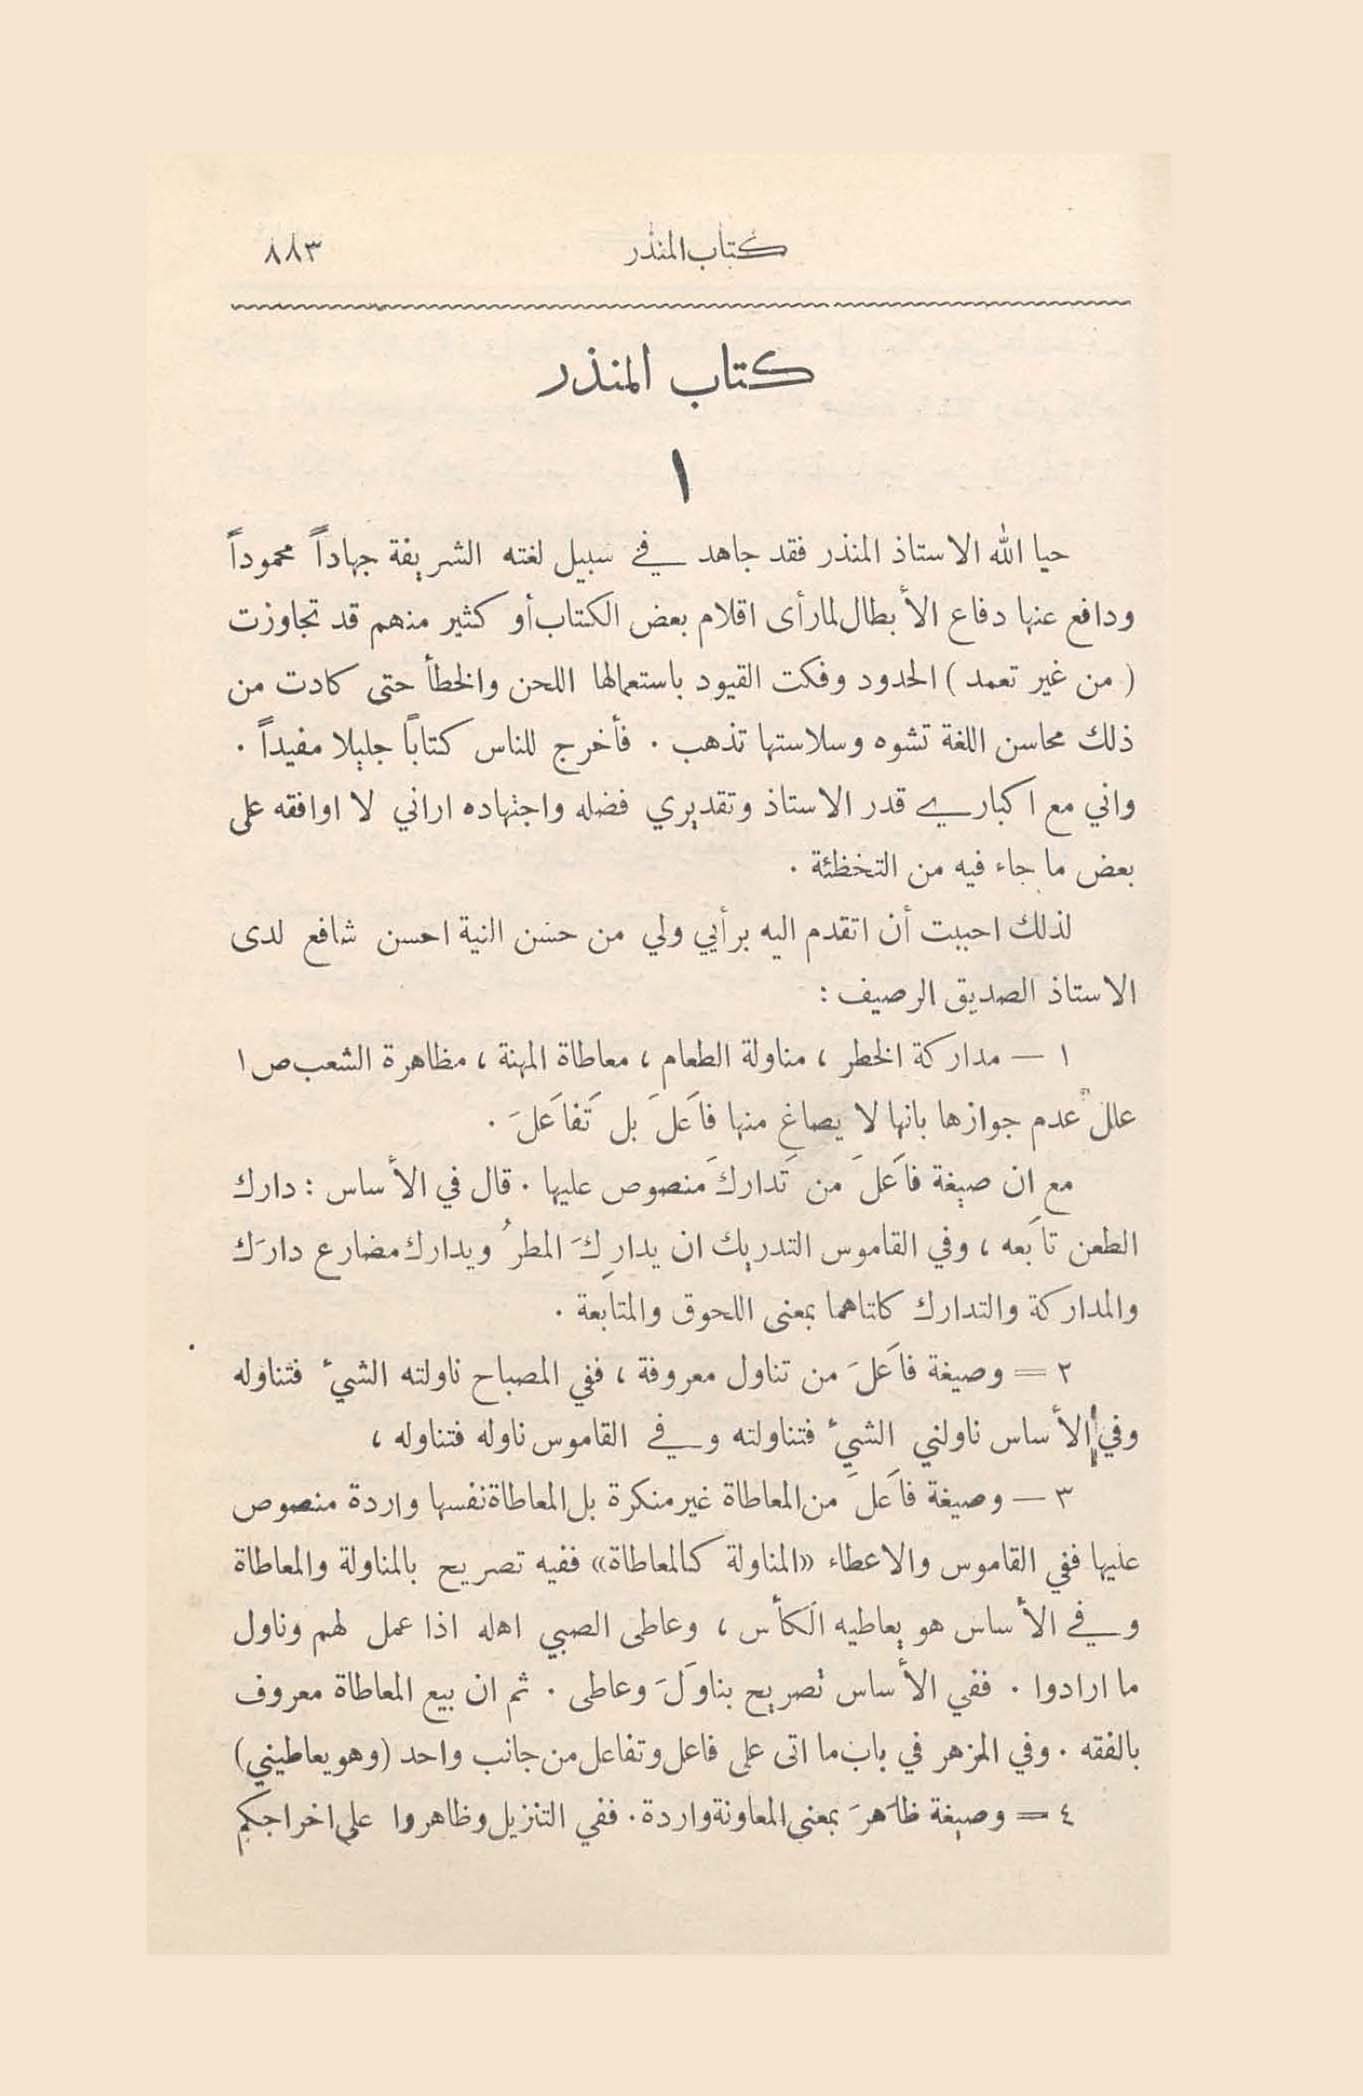 كتاب المنذر ٨٨٣
كتاب المنذر
١
حيا الله الاستاذ المنذر فقد جاهد في سبيل لغته الشريفة جهاداً محموداً
ودافع عنها دفاع الأبطال لما رأى اقلام بعض الكتاب أو كثير منهم قد تجاوزت
( من غير تعمد ) الحدود وفكت القيود باستعمالها اللحن والخطأ حتى كادت من
ذلك محاسن اللغة تشوه وسلاستها تذهب . فأخرج للناس كتاباً جليلا مفيداً .
واني مع اكباري قدر الاستاذ وتقديري فضله واجتهاده اراني لا اوافقه على
بعض ما جاء فيه من التخظئة .
لذلك احببت أن اتقدم اليه برأيي ولي من حسن النية احسن شافع لدى
الاستاذ الصديق الرصيف :
١ — مداركة الخطر ، مناولة الطعام ، معاطاة المهنة ، مظاهرة الشعب ص ١
علل عدم جوازها بانها لا يصاغ منها فاَعلَ بل تَفاَعلَ .
مع ان صيغة فاَعلَ من تَداركَ منصوص عليها . قال في الأساس : دارك
الطعن تاَبعه ، وفي القاموس التدريك ان يدارِكَ المطرُ ويدارك مضارع دارَك
والمداركة والتدارك كاتاهما بمعنى اللحوق والمتابعة .
٢ = وصيغة فاَعلَ من تناول معروفة ، ففي المصباح ناولته الشيء فتناوله
وفي الأساس ناولني الشيء فتناولته وفي القاموس ناوله فتناوله ،
٣ — وصيغة فاَعلَ من المعاطاة غير منكرة بل المعاطاة نفسها واردة منصوص
عليها ففي القاموس والاعطاء «المناولة كالمعاطاة» ففيه تصريح بالمناولة والمعاطاة
وفي الأساس هو يعاطيه الكأس ، وعاطى الصبي اهله اذا عمل لهم وناول
ما ارادوا . ففي الأساس تصريح بناوَلَ وعاطى . ثم ان بيع المعاطاة معروف
بالفقه . وفي المزهر في باب ما اتى على فاعل وتفاعل من جانب واحد (وهو يعاطيني)
٤ = وصيغة ظاَهرَ بمعنى المعاونة واردة. ففي التنزيل وظاهروا على اخراجكم